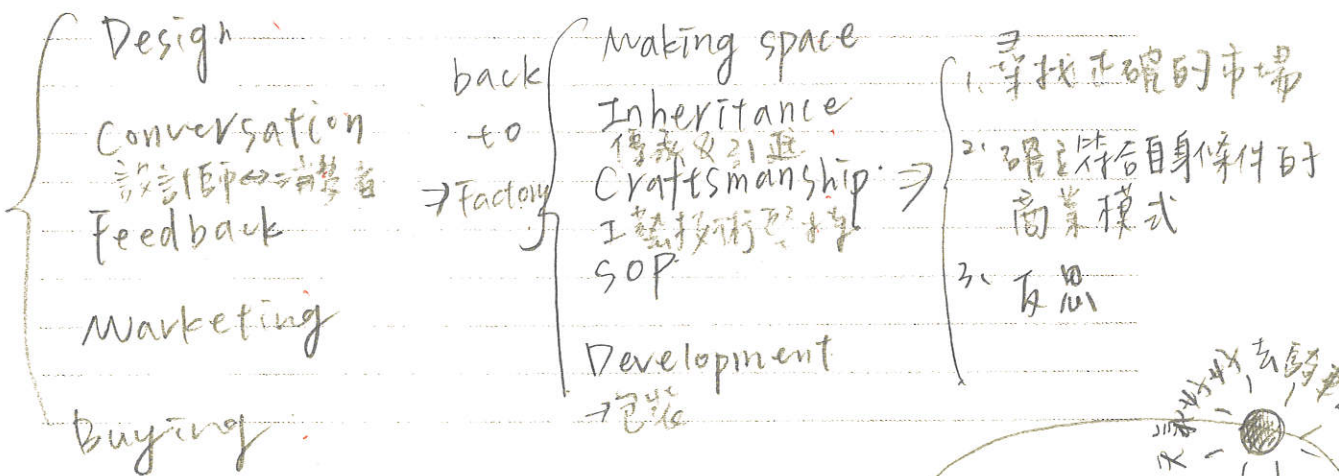 Design
Conversation
設計師⇔消費者
Feedback
Marketing
Buying
back
to
⇒Factory
Making space
Inheritance
傳承及引進
Craftsmanship ⇒
工藝技術堅持
SOP
Development
→包裝
1、尋找正確的市場
2、確立符合自身條件的
商業模式
3、反思
去